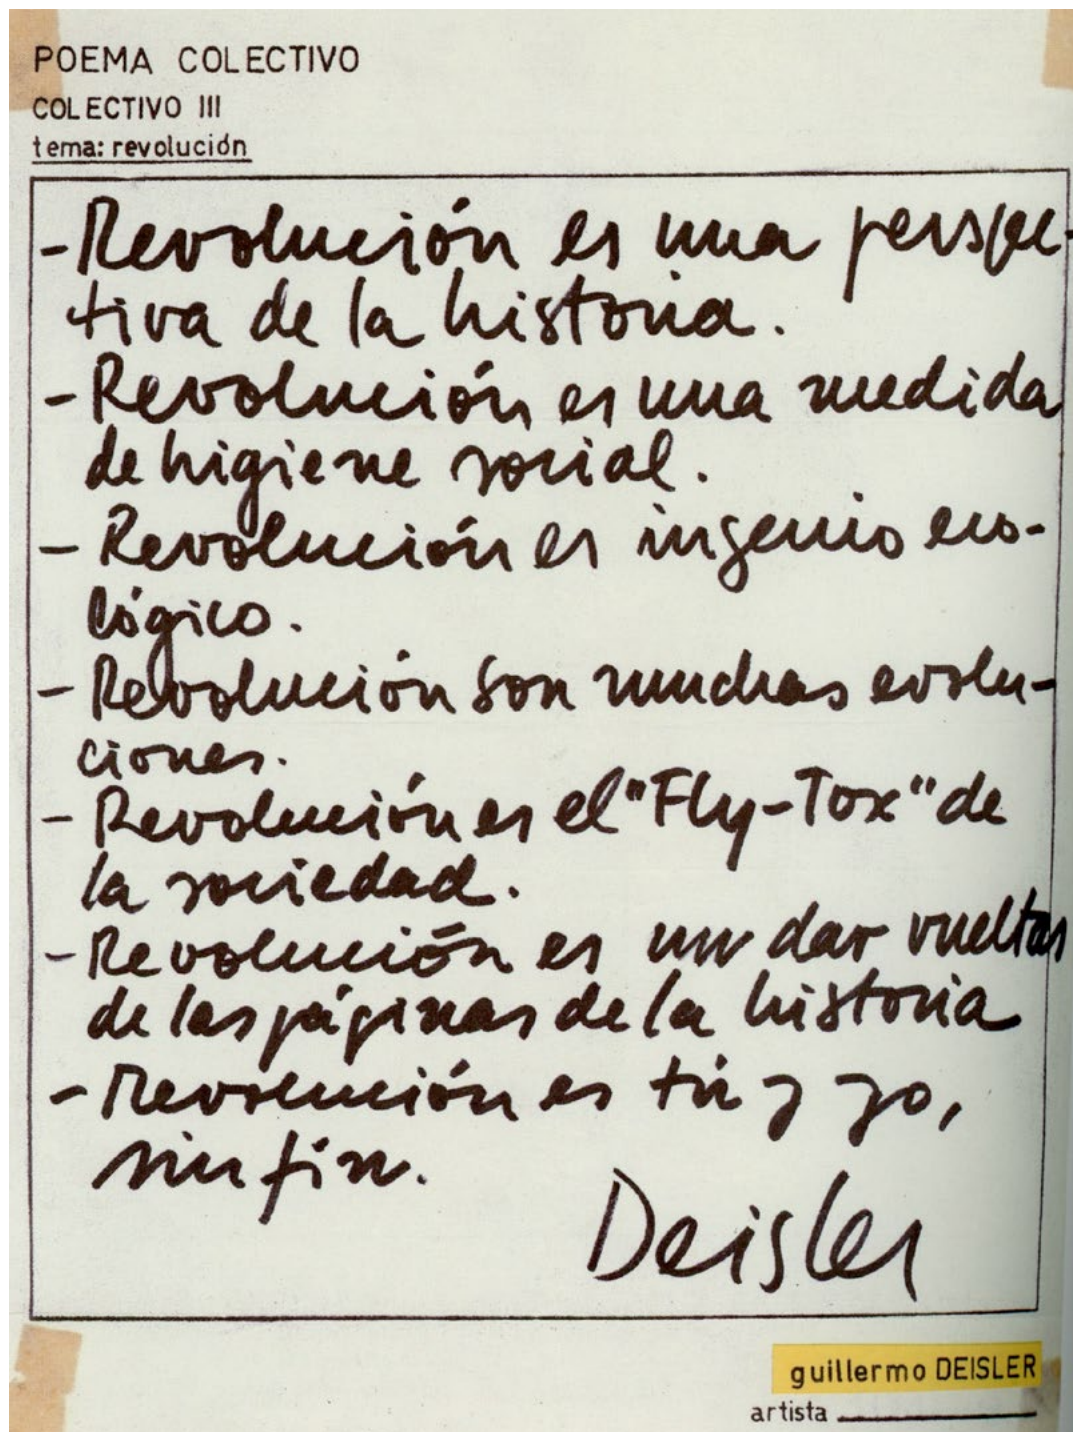 POEMA COLECTIVO
COLECTIVO III
tema: revolución
- Revolución es una perspec-
tiva de la historia.
- Revolución es una medida
de higiene social.
- Revolución es ingenio eco-
lógico.
- Revolución son muchas evolu-
ciones.
- Revolución es el "Fly-Tox" de
la sociedad.
- Revolución es un dar vueltas
de las páginas de la historia
- Revolución es tú y yo,
sin fin.
Deisler
guillermo DEISLER
artista